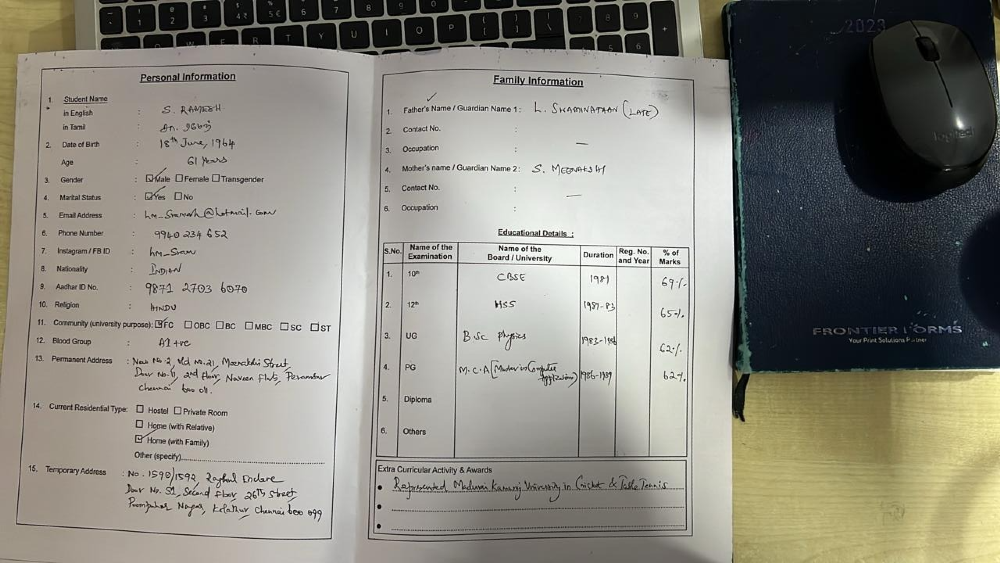 Personal Information
1. Student Name
in English : S. RAMESH
in Tamil :
2. Date of Birth : 18th June, 1964
Age : 61 Years
3. Gender : Male Female Transgender
4. Marital Status : Yes No
5. Email Address :
6. Phone Number : 9940 234 652
7. Instagram / FB ID : hm_Sram
8. Nationality : INDIAN
9. Aadhar ID No. : 9871 2703 6070
10. Religion : HINDU
11. Community (university purpose): FC OBC BC MBC SC ST
12. Blood Group : A1 +ve
13. Permanent Address : New No. 2, Old No. 21, Street,
Door No. 11, 2nd Floor, Naveen Flats, Perambur
Chennai 600 011.
14. Current Residential Type: Hostel Private Room
Home (with Relative)
Home (with Family)
Other (specify)
15. Temporary Address : No. 1590/1592, Enclave
Door No. S1, Second Floor, 26th Street
Nagar, Kolathur Chennai 600 099
Family Information
1. Father's Name / Guardian Name 1 : L. SWAMINATHAN (LATE)
2. Contact No. :
3. Occupation : —
4. Mother's name / Guardian Name 2 : S. MEENAKSHI
5. Contact No. : —
6. Occupation :
Educational Details :
S.No. Name of the Examination Name of the Board / University Duration Reg. No. and Year % of Marks
1. 10th CBSE 1981 69%
2. 12th HSS 1981-83 65%
3. UG B.Sc Physics 1983-1986 62%
4. PG M.C.A [Master in Computer Application] 1986-1989 62%
5. Diploma
6. Others
Extra Curricular Activity & Awards
• Represented Madurai Kamaraj University in Cricket & Table Tennis
2023
logitech
FRONTIER FORMS
Your Print Solutions Partner